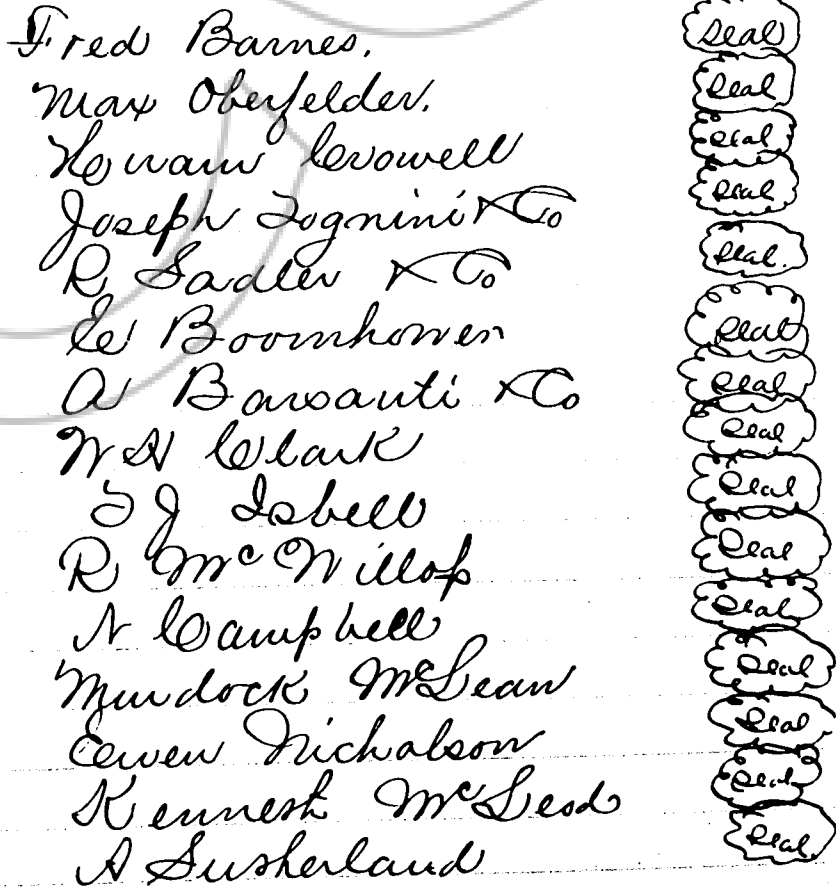 Fred Barnes. Seal
Max Oberfelder. Seal
Hiram Crowell Seal
Joseph Tognini & Co Seal
R Sadler & Co Seal
E Boomhower Seal
A Barsanti & Co Seal
W H Clark Seal
T J Isbell Seal
R Mc Willop Seal
N Campbell Seal
Murdock McLean Seal
Ewen Nicholson Seal
Kenneth McLeod Seal
A Sutherland Seal